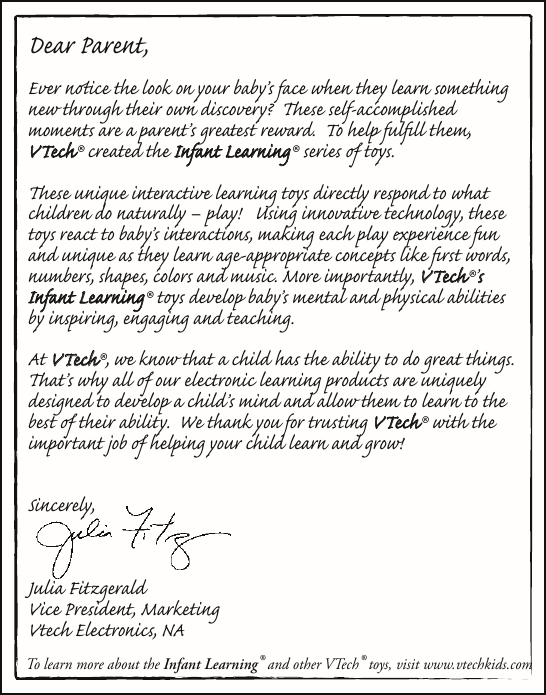 Dear Parent,
Ever notice the look on your baby's face when they learn something
new through their own discovery? These self-accomplished
moments are a parent's greatest reward. To help fulfill them,
VTech® created the Infant Learning® series of toys.
These unique interactive learning toys directly respond to what
children do naturally – play! Using innovative technology, these
toys react to baby's interactions, making each play experience fun
and unique as they learn age-appropriate concepts like first words,
numbers, shapes, colors and music. More importantly, VTech®'s
Infant Learning® toys develop baby's mental and physical abilities
by inspiring, engaging and teaching.
At VTech®, we know that a child has the ability to do great things.
That's why all of our electronic learning products are uniquely
designed to develop a child's mind and allow them to learn to the
best of their ability. We thank you for trusting VTech® with the
important job of helping your child learn and grow!
Sincerely,
Julia Fitz
Julia Fitzgerald
Vice President, Marketing
Vtech Electronics, NA
To learn more about the Infant Learning® and other VTech® toys, visit www.vtechkids.com